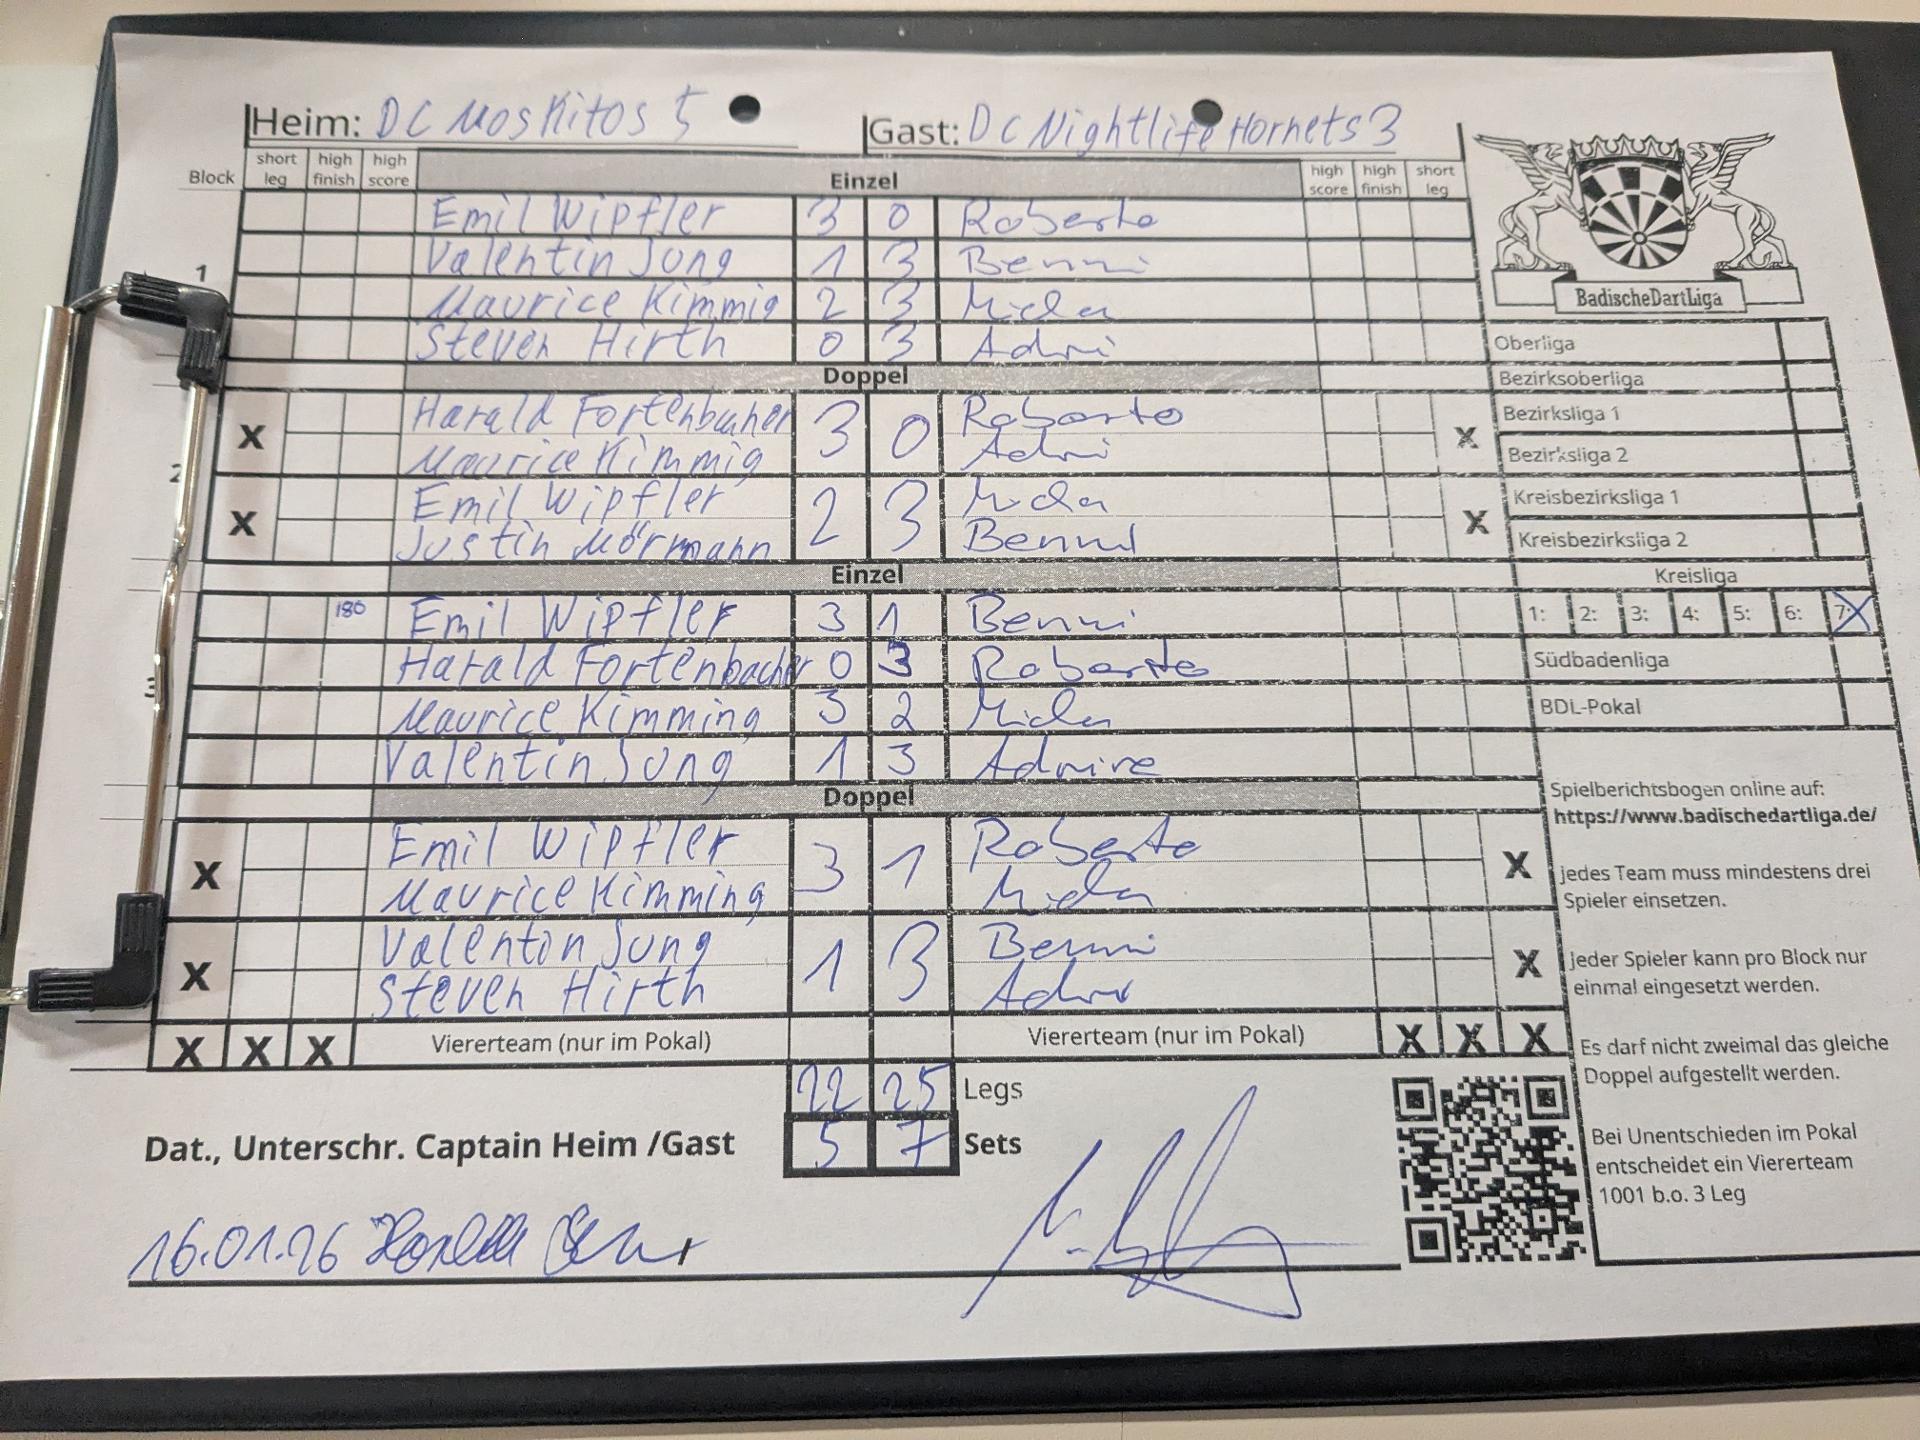 Heim: DC Moskitos 5 Gast: DC Nightlife Hornets 3
Block short leg high finish high score Einzel high score high finish short leg
1
Emil Wipfler 3 0 Roberto
Valentin Jung 1 3 Benni
Maurice Kimmig 2 3 Mida
Steven Hirth 0 3 Adri
Doppel
2
X Harald Fortenbacher 3 0 Roberto X
Maurice Kimmig Adri
X Emil Wipfler 2 3 Mida X
Justin Mörmann Benni
Einzel
3
180 Emil Wipfler 3 1 Benni
Harald Fortenbacher 0 3 Roberto
Maurice Kimming 3 2 Mida
Valentin Jung 1 3
Doppel
X Emil Wipfler 3 1 Roberto X
Maurice Kimming Mida
X Valenton Jung 1 3 Benni X
Steven Hirth Adri
X X X Viererteam (nur im Pokal) Viererteam (nur im Pokal) X X X
22 25 Legs
Dat., Unterschr. Captain Heim /Gast 5 7 Sets
16.01.26
BadischeDartLiga
Oberliga
Bezirksoberliga
Bezirksliga 1
Bezirksliga 2
Kreisbezirksliga 1
Kreisbezirksliga 2
Kreisliga
1: 2: 3: 4: 5: 6: 7: X
Südbadenliga
BDL-Pokal
Spielberichtsbogen online auf:
https://www.badischedartliga.de/
jedes Team muss mindestens drei
Spieler einsetzen.
Jeder Spieler kann pro Block nur
einmal eingesetzt werden.
Es darf nicht zweimal das gleiche
Doppel aufgestellt werden.
Bei Unentschieden im Pokal
entscheidet ein Viererteam
1001 b.o. 3 Leg